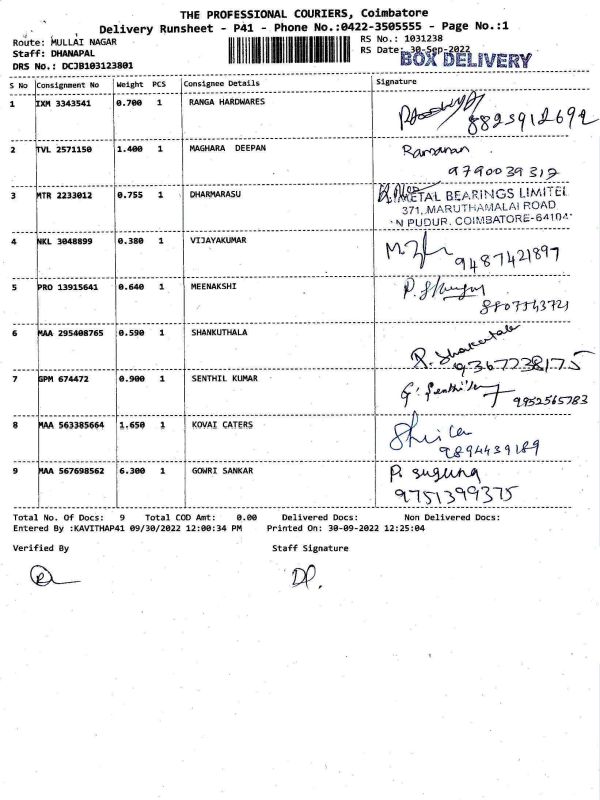 THE PROFESSIONAL COURIERS, Coimbatore
Delivery Runsheet - P41 - Phone No.:0422-3505555 - Page No.:1
Route: MULLAI NAGAR RS No.: 1031238
Staff: DHANAPAL RS Date: 30-Sep-2022
BOX DELIVERY
DRS No.: DCJB103123801
S No Consignment No Weight PCS Consignee Details Signature
1 IXM 3343541 0.700 1 RANGA HARDWARES
8825912692
2 TVL 2571150 1.400 1 MAGHARA DEEPAN Ramanan
9790039312
3 MTR 2233012 0.755 1 DHARMARASU
METAL BEARINGS LIMITEL
371, MARUTHAMALAI ROAD
N PUDUR, COIMBATORE-64104
4 NKL 3048899 0.380 1 VIJAYAKUMAR
9487421897
5 PRO 13915641 0.640 1 MEENAKSHI
8807543721
6 MAA 295408765 0.590 1 SHANKUTHALA
9367238175
7 GPM 674472 0.900 1 SENTHIL KUMAR G. Senthil
9952565783
8 MAA 563385664 1.650 1 KOVAI CATERS
9894439189
9 MAA 567698562 6.300 1 GOWRI SANKAR P. suguna
9751399375
Total No. Of Docs: 9 Total COD Amt: 0.00 Delivered Docs: Non Delivered Docs:
Entered By :KAVITHAP41 09/30/2022 12:00:34 PM Printed On: 30-09-2022 12:25:04
Verified By Staff Signature
DP.